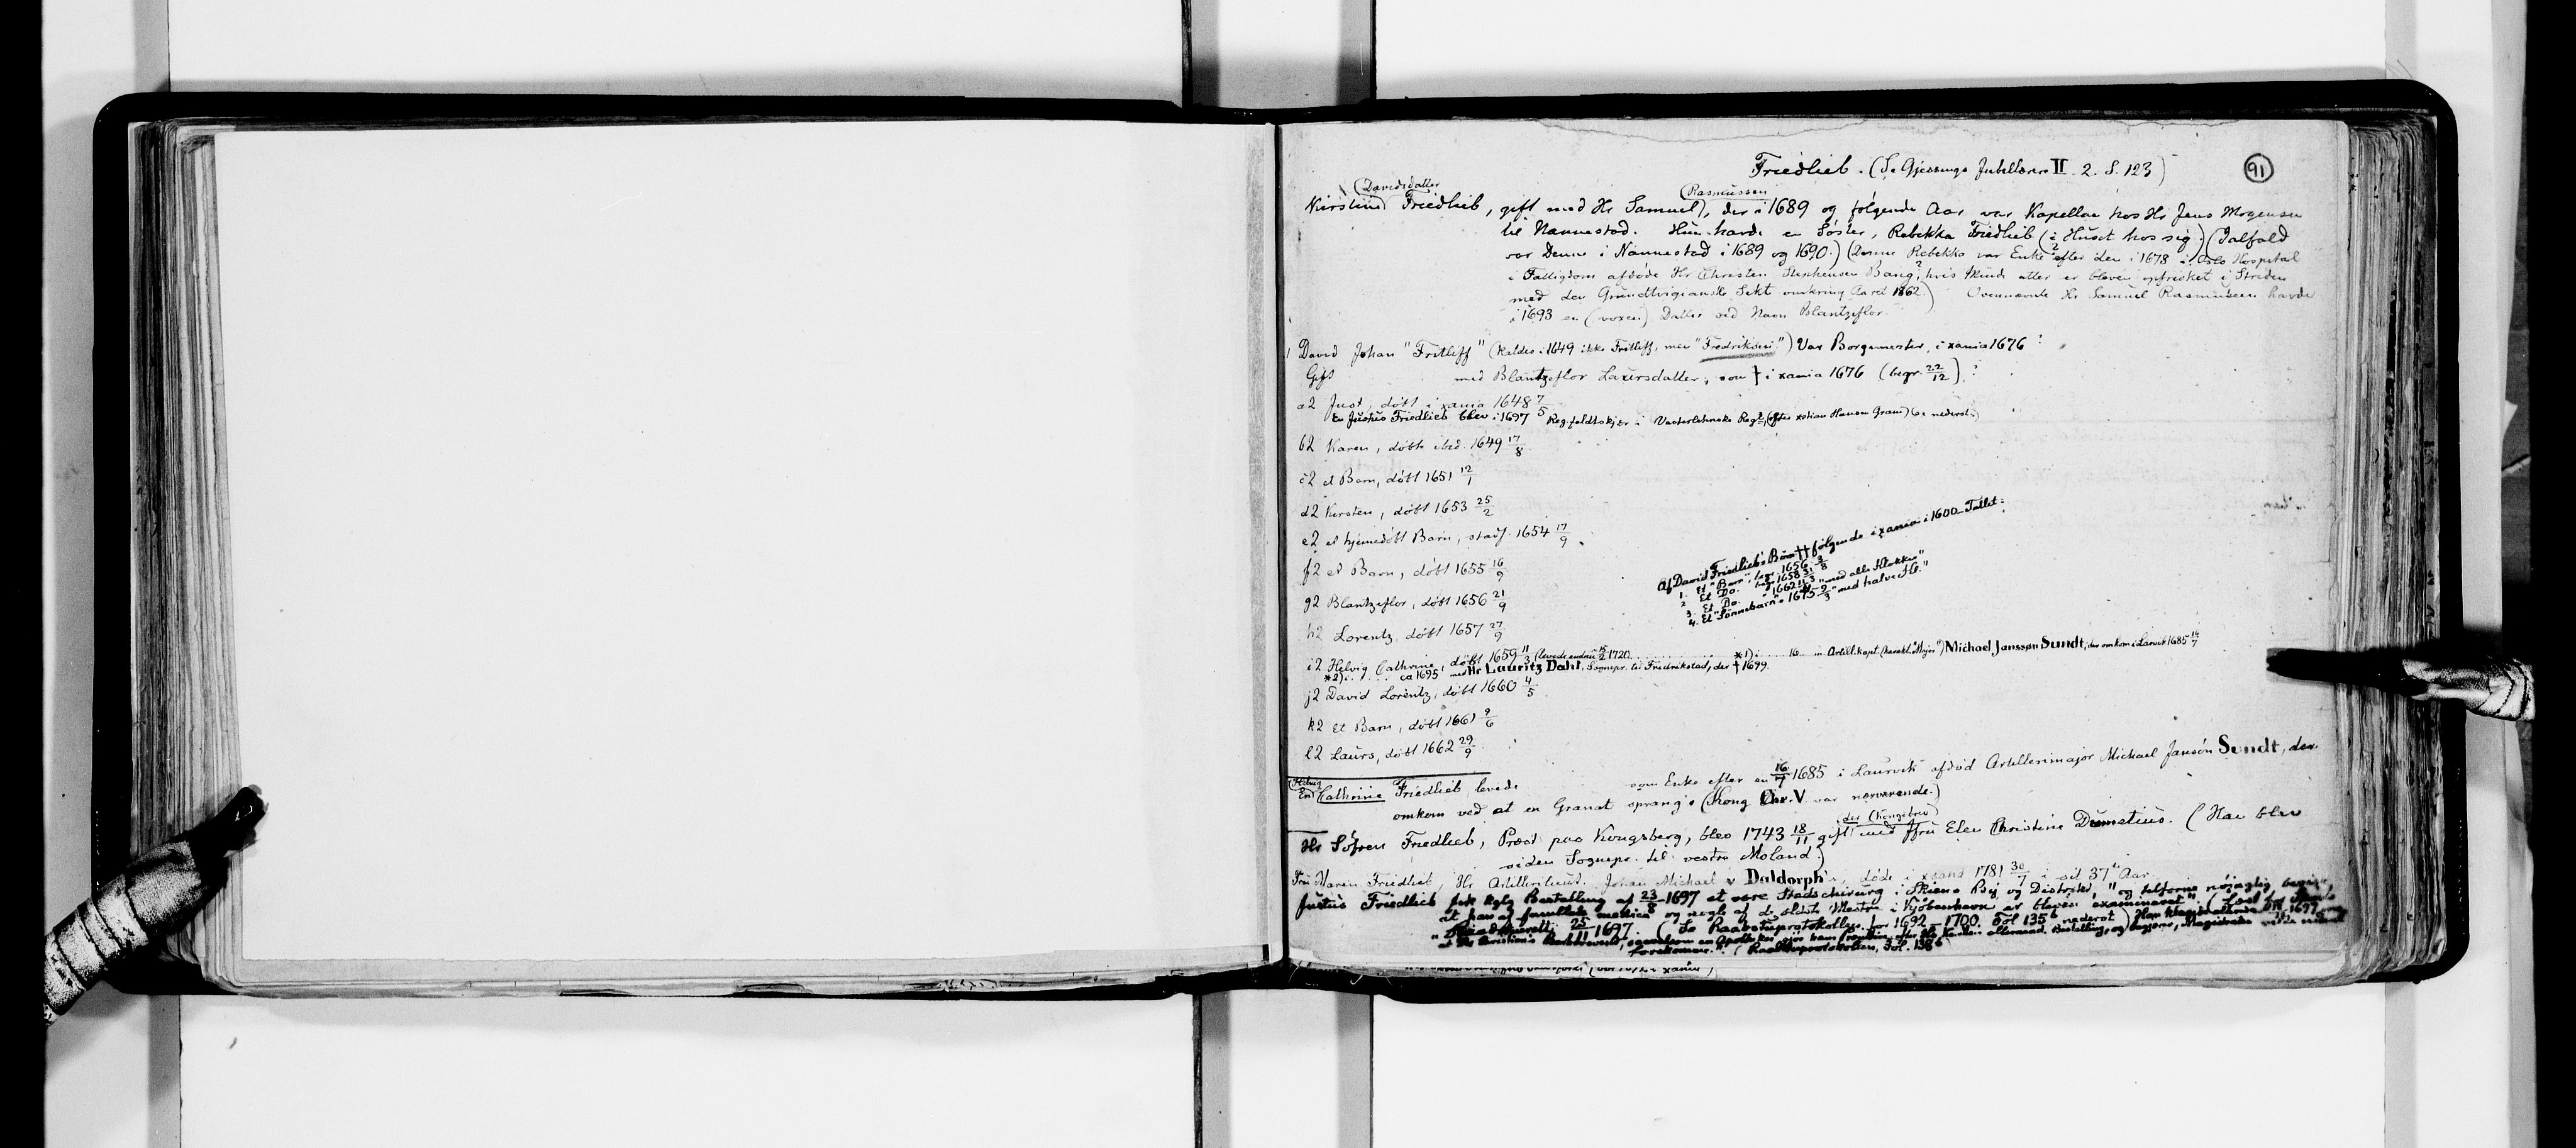 Friedlieb. (Se Gjessings Jubellærere II. 2. S. 123)
91
(Davidsdatter (Rasmussen
Kirstine) Friedlieb, gift med Hr Samuel), der i 1689 og følgende Aar var Kapellan hos Hr Jens Mogensen
til Nannestad. Hun havde en Søster, Rebekka Friedlieb (i Huset hos sig). (Ialfald
var Denne i Nannestad i 1689 og 1690.) (Denne Rebekka var Enke efter den i 1678 i Oslo Hospital
i Fattigdom afdøde Hr Christen Stephensen Bang?, hvis Minde atter er bleven opfrisket i Striden
med den Grundtvigianske Sekt omkring Aaret 1862.) Ovennævnte Hr Samuel Rasmussen havde
i 1693 en (voxen) Datter ved Navn Blantzeflor.
1 David Johan "Fritliff" (kaldes i 1649 ikke Fritliff, men "Fredriksen") Var Borgemester i xania 1676
Gift med Blantzeflor Laursdatter, som † i xania 1676 (begr. 22/12).
a2 Just, døbt i xania 1648 7/5
En Justus Friedlieb blev i 1697 Reg.feldtskjær i Vesterlehnske Regt, (efter xstian Hansen Gram) (se nederst.)
b2 Karen, døbt ibid. 1649 17/8
c2 et Barn, døbt 1651 12/1
d2 Kirsten, døbt 1653 25/2
e2 et hjemedøbt Barn, stadf. 1654 17/9.
f2 et Barn, døbt 1655 16/9
g2 Blantzeflor, døbt 1656 21/9
h2 Lorentz, døbt 1657 27/9
Af David Friedlieb's Børn †† følgende i xania i 1600-Tallet:
1. Et "Barn" begr. 1656 3/8
2. Et Do. begr. 1658
3. Et Do. " 1662 "med alle Klokker"
4. Et "Sønnebarn" 1675 2/3 "med halve Kl."
i2 Helvig Cathrine, døbt 1659 11/3 (levede endnu 1720 *1) 16 m Artill.kapt. (karakt. Major) Michael Janssøn Sundt, der omkom i Larvik 1685 16/7
*2) ca 1695 med Hr Lauritz Dahl, Sognepr. til Fredrikstad, der † 1699.
j2 David Lorentz, døbt 1660 4/5
k2 Et Barn, døbt 1661 9/6
l2 Laurs, døbt 1662 29/9
(Helvig
En) Cathrine Friedlieb levede som Enke efter en 16/7 1685 i Laurvik afdød Artillerimajor Michael Jansøn Sundt, der
omkom ved at en Granat sprang (Kong Chr. V. var nærværende.)
der (Kongsberg)
Hr Søfren Friedlieb, Præst paa Kongsberg, blev 1743 18/11 gift med Jfru Elen Christine Dumetius. (Han blev
siden Sognepr. til vestre Moland.)
Fru Maren Friedlieb, Hr Artillerilieut. Johan Michael v Daldorph's, døde i xsand 1781 30/7 i sit 37te Aar.
Justus Friedlieb fik kgl. Bestalling af 23/8 1697 at være Stadschirurg i Skiens Bij og Distrikt, "og
at han af facultate medica og nogle af de ældste Mestre i Kjøbenhavn er bleven examineret". (Læst
25/11 1697. (Se Raadstueprotokollen for 1692-1700. Fol 135 nederst)
forekommer." (Raadstueprotokollen, Fol. 138b